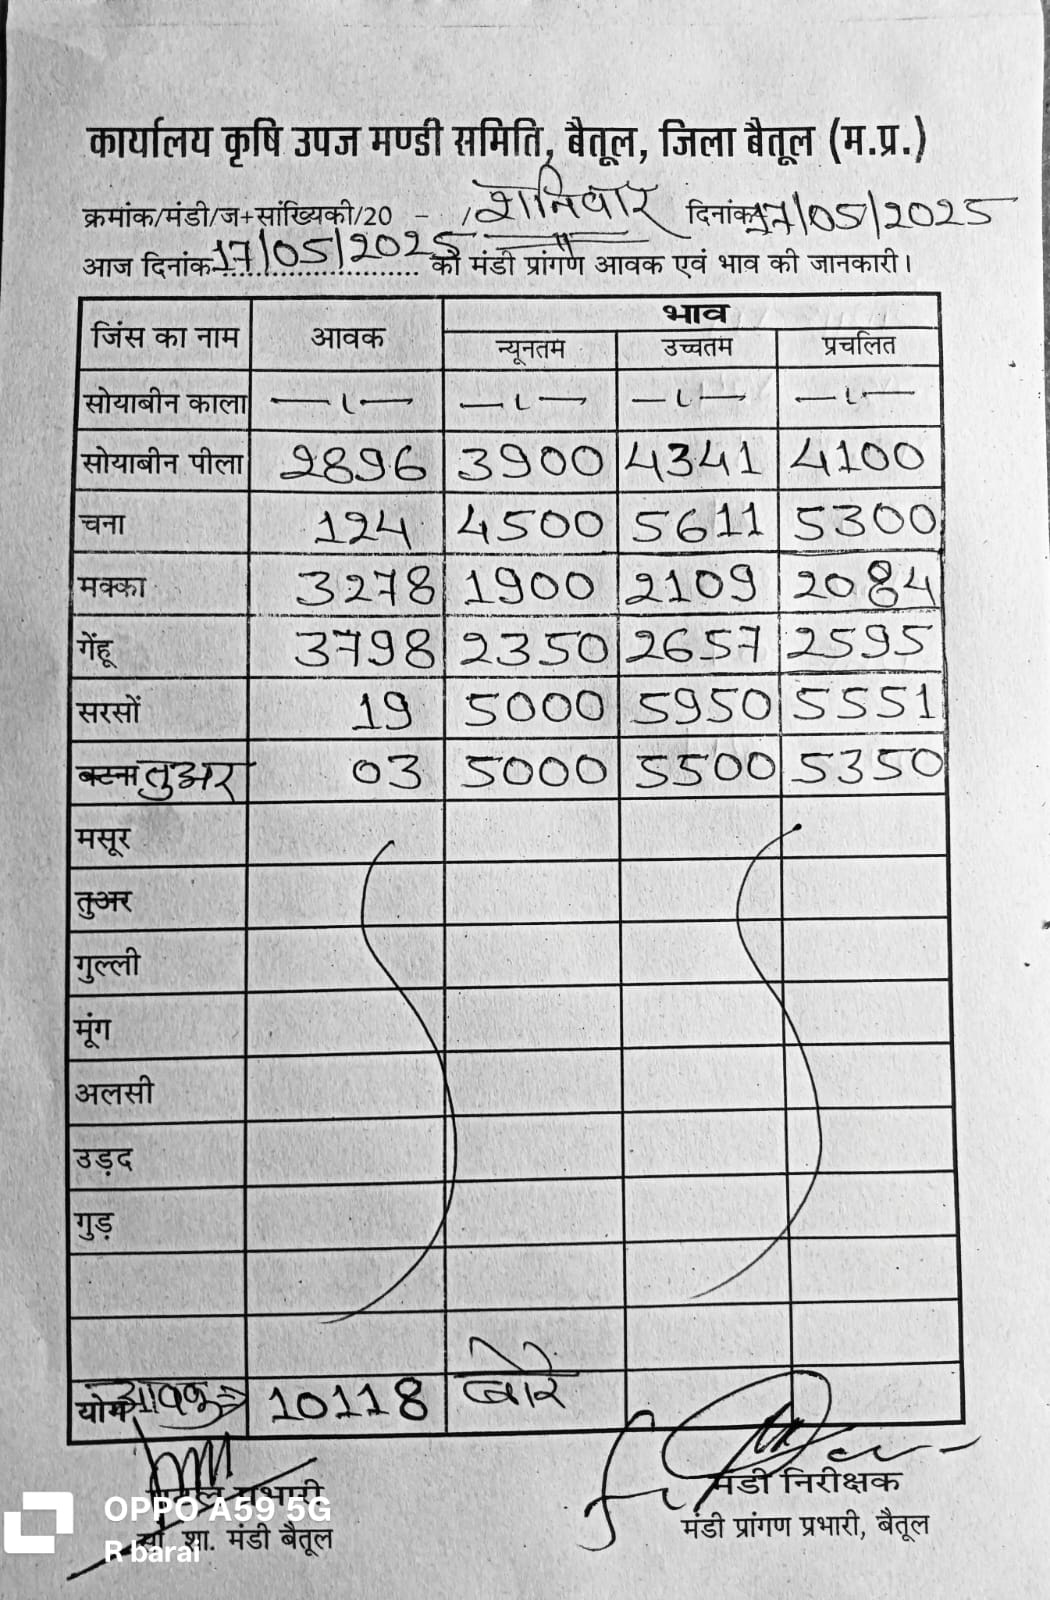 कार्यालय कृषि उपज मण्डी समिति, बैतूल, जिला बैतूल (म.प्र.)
क्रमांक/मंडी/ज+सांख्यिकी/20 - / शनिवार दिनांक 17/05/2025
आज दिनांक 17/05/2025 को मंडी प्रांगण आवक एवं भाव की जानकारी।
जिंस का नाम आवक भाव
न्यूनतम उच्चतम प्रचलित
सोयाबीन काला —।— —।— —।— —।—
सोयाबीन पीला 2896 3900 4341 4100
चना 124 4500 5611 5300
मक्का 3278 1900 2109 2084
गेंहू 3798 2350 2657 2595
सरसों 19 5000 5950 5551
बटना तुअर 03 5000 5500 5350
मसूर
तुअर
गुल्ली
मूंग
अलसी
उड़द
गुड़
योग आवक 10118 बोरे
प्रभारी मंडी निरीक्षक
शा. मंडी बैतूल मंडी प्रांगण प्रभारी, बैतूल
OPPO A59 5G
R barai